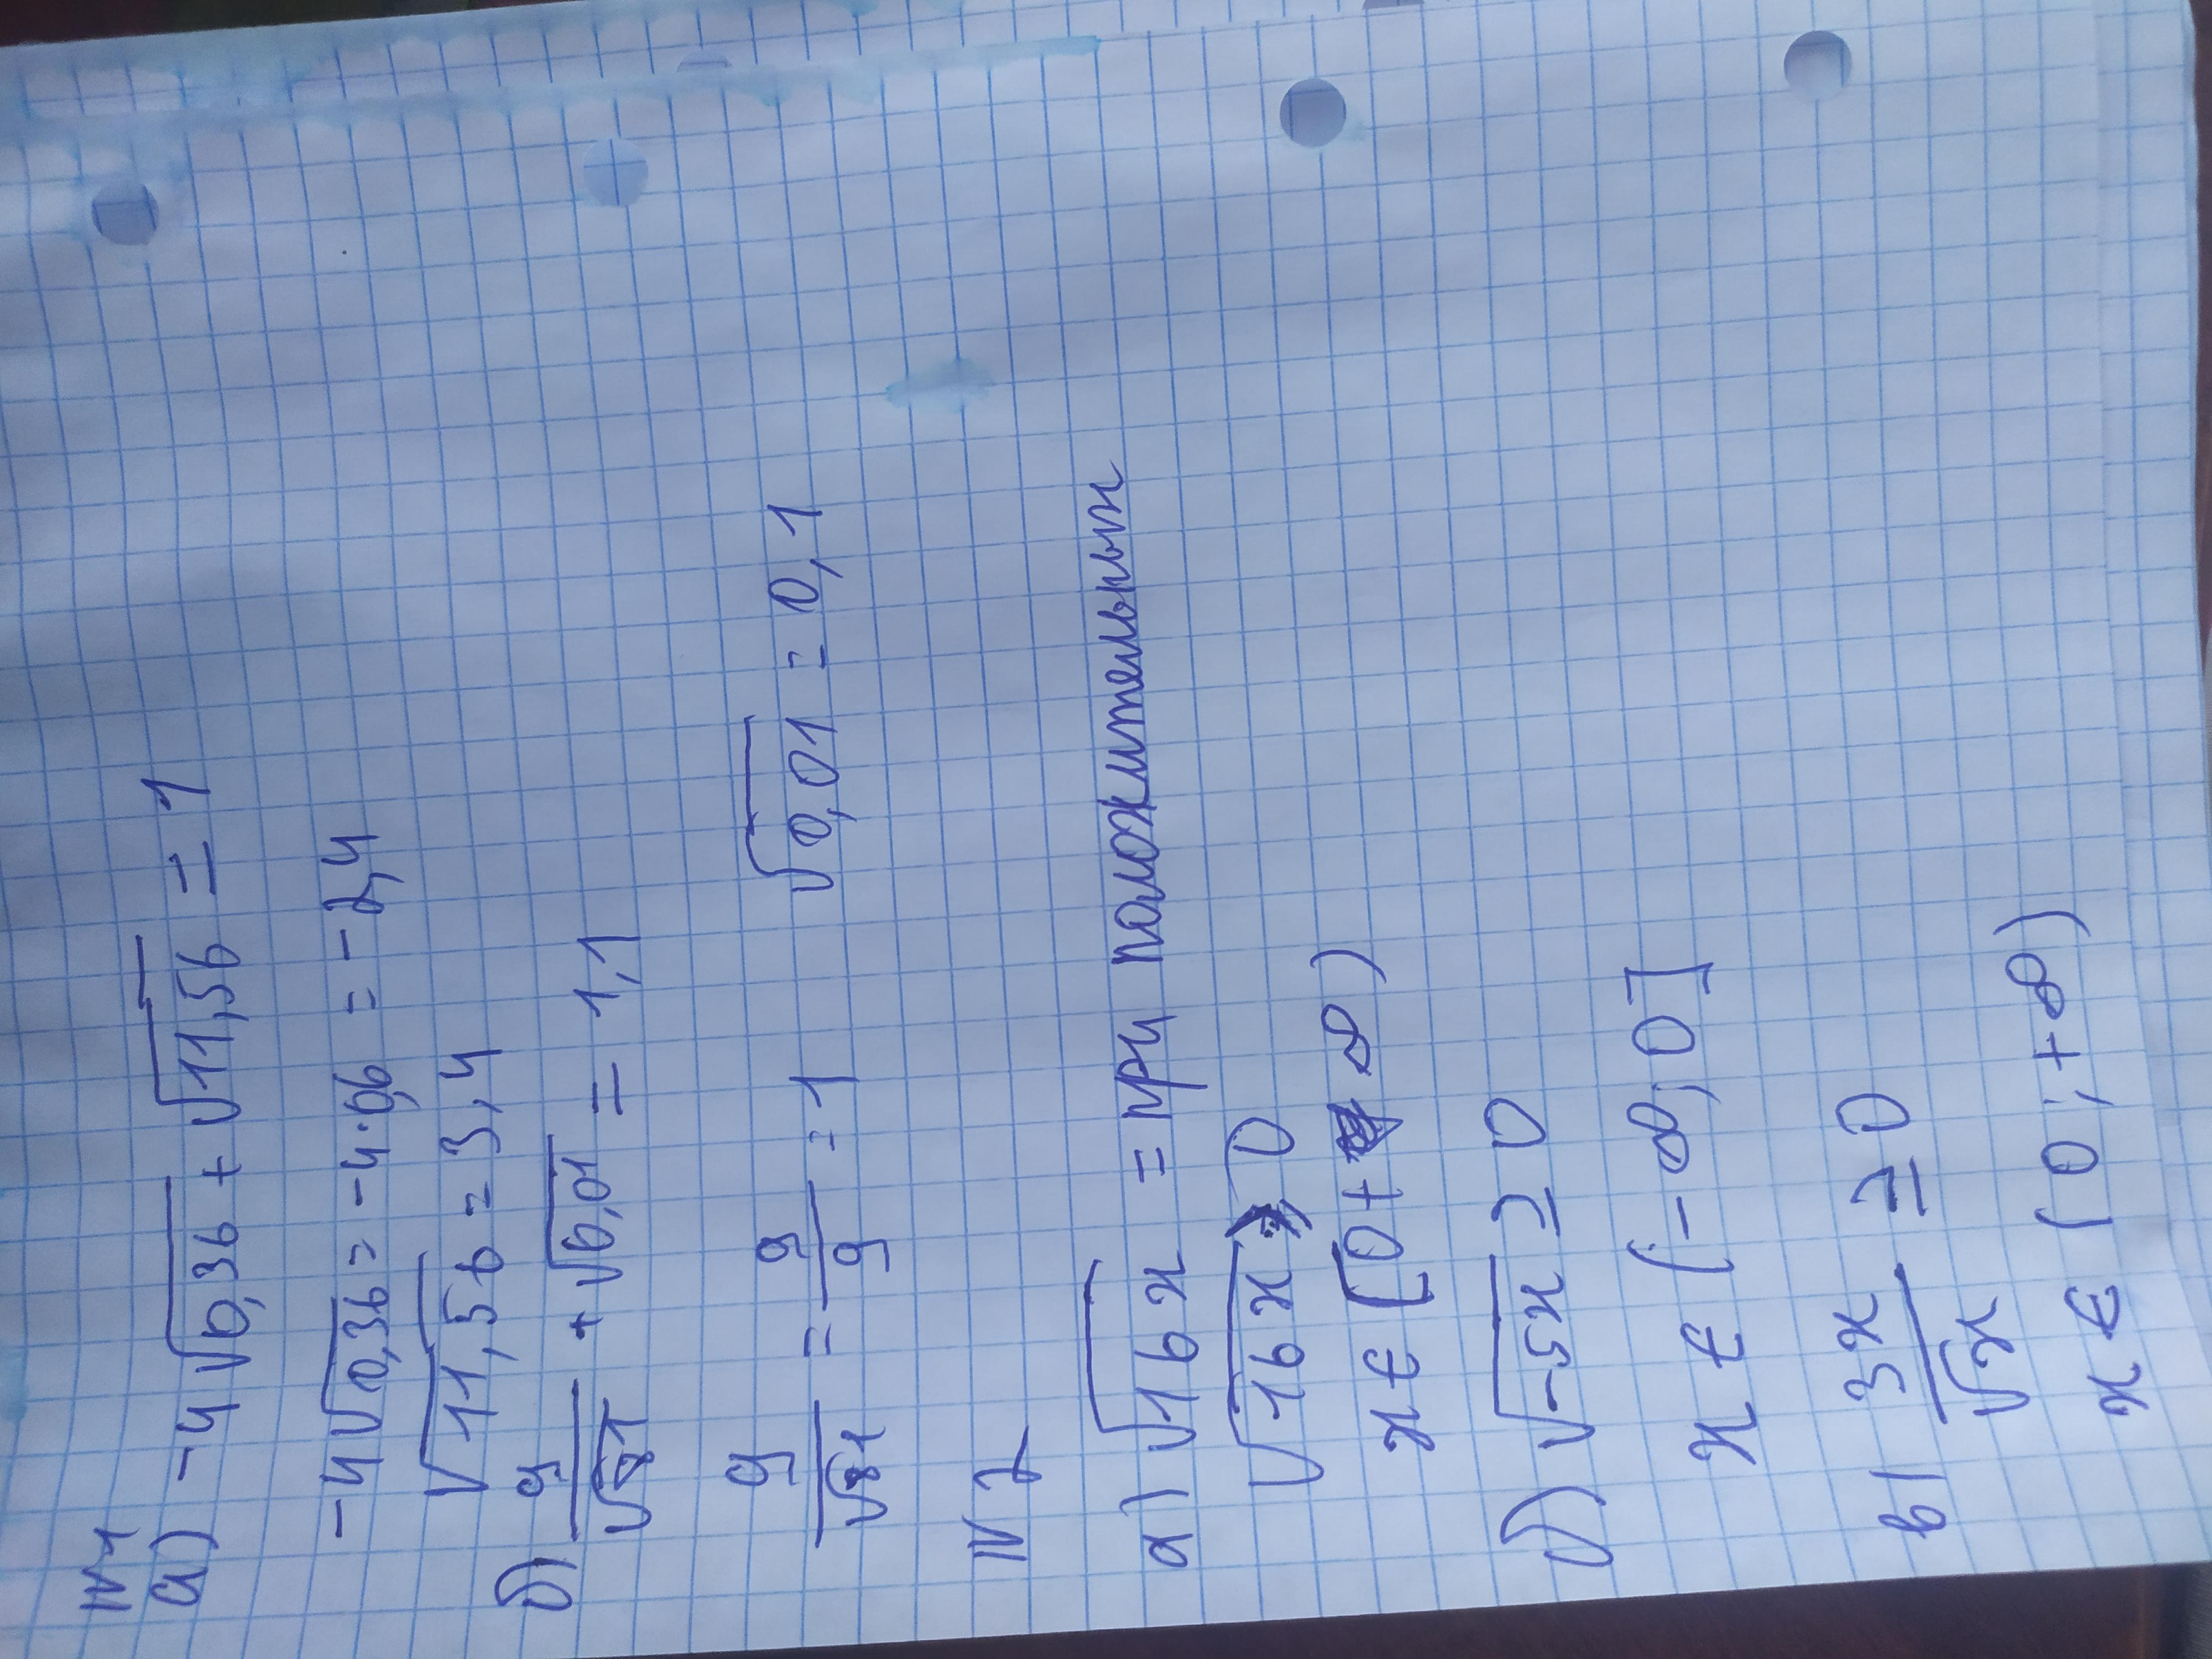 N1
а) -4√0,36 + √11,56 = 1
-4√0,36 = -4·0,6 = -2,4
√11,56 = 3,4
б) 9/√81 + √0,01 = 1,1
9/√81 = 9/9 = 1 √0,01 = 0,1
N2
а) √16x = при положительных
√16x ≥ 0
x ∈ [0 + ∞)
б) √-5x ≥ 0
x ∈ (-∞; 0]
в) 3x/√x ≥ 0
x ∈ (0; +∞)